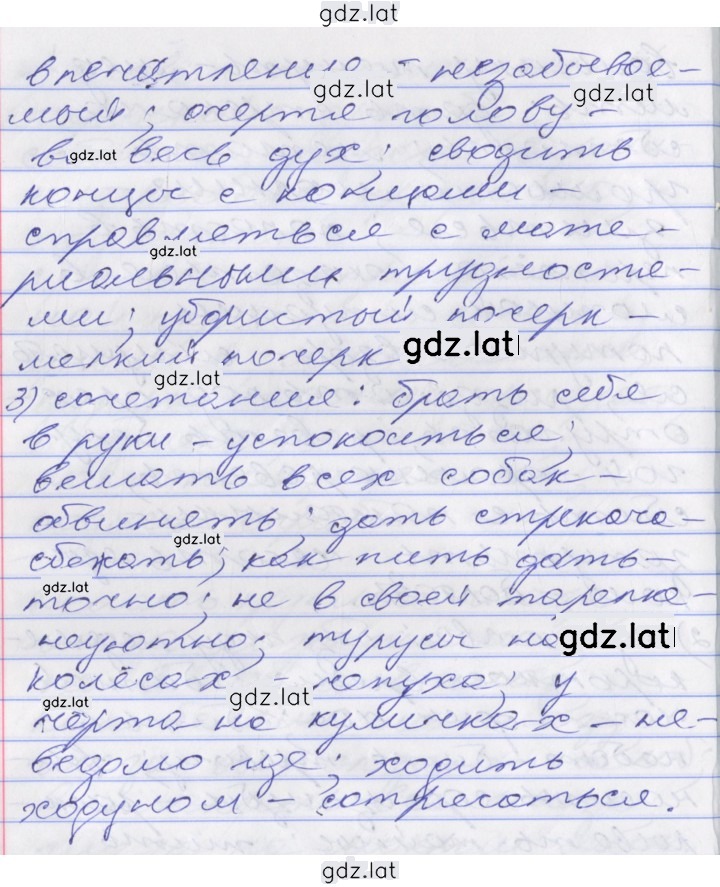 gdz.lat
впечатлени – незабывае-
мый; очертя голову –
во весь дух; сводить
концы с концами –
справляться с мате-
риальными трудностя-
ми; убористый почерк –
мелкий почерк
3) сочетания: брать себя
в руки – успокоиться;
вешать всех собак –
обвинять; дать стрекача –
сбежать; как пить дать –
точно; не в своей тарелке –
неуютно; турусы на
колёсах – чепуха; у
чёрта на куличках – не-
ведомо где; ходить
ходуном – сотрясаться.
gdz.lat